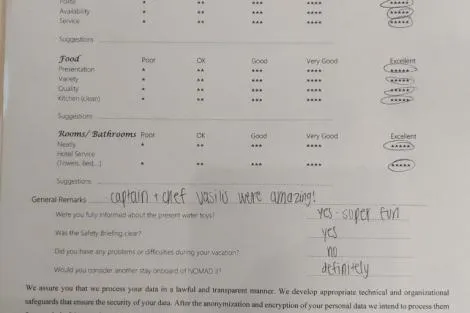 Polite * ** *** **** *****
Availability * ** *** **** *****
Service * ** *** **** *****
Suggestions
Food Poor OK Good Very Good Excellent
Presentation * ** *** **** *****
Variety * ** *** **** *****
Quality * ** *** **** *****
Kitchen (clean) * ** *** **** *****
Suggestions
Rooms/ Bathrooms Poor OK Good Very Good Excellent
Neatly * ** *** **** *****
Hotel Service
(Towels, Bed...) * ** *** **** *****
Suggestions
General Remarks captain + chef vasilis were amazing!
Were you fully informed about the present water toys? yes - super fun
Was the Safety Briefing clear? yes
Did you have any problems or difficulties during your vacation? no
Would you consider another stay onboard of NOMAD II? definitely
We assure you that we process your data in a lawful and transparent manner. We develop appropriate technical and organizational
safeguards that ensure the security of your data. After the anonymization and encryption of your personal data we intend to process them